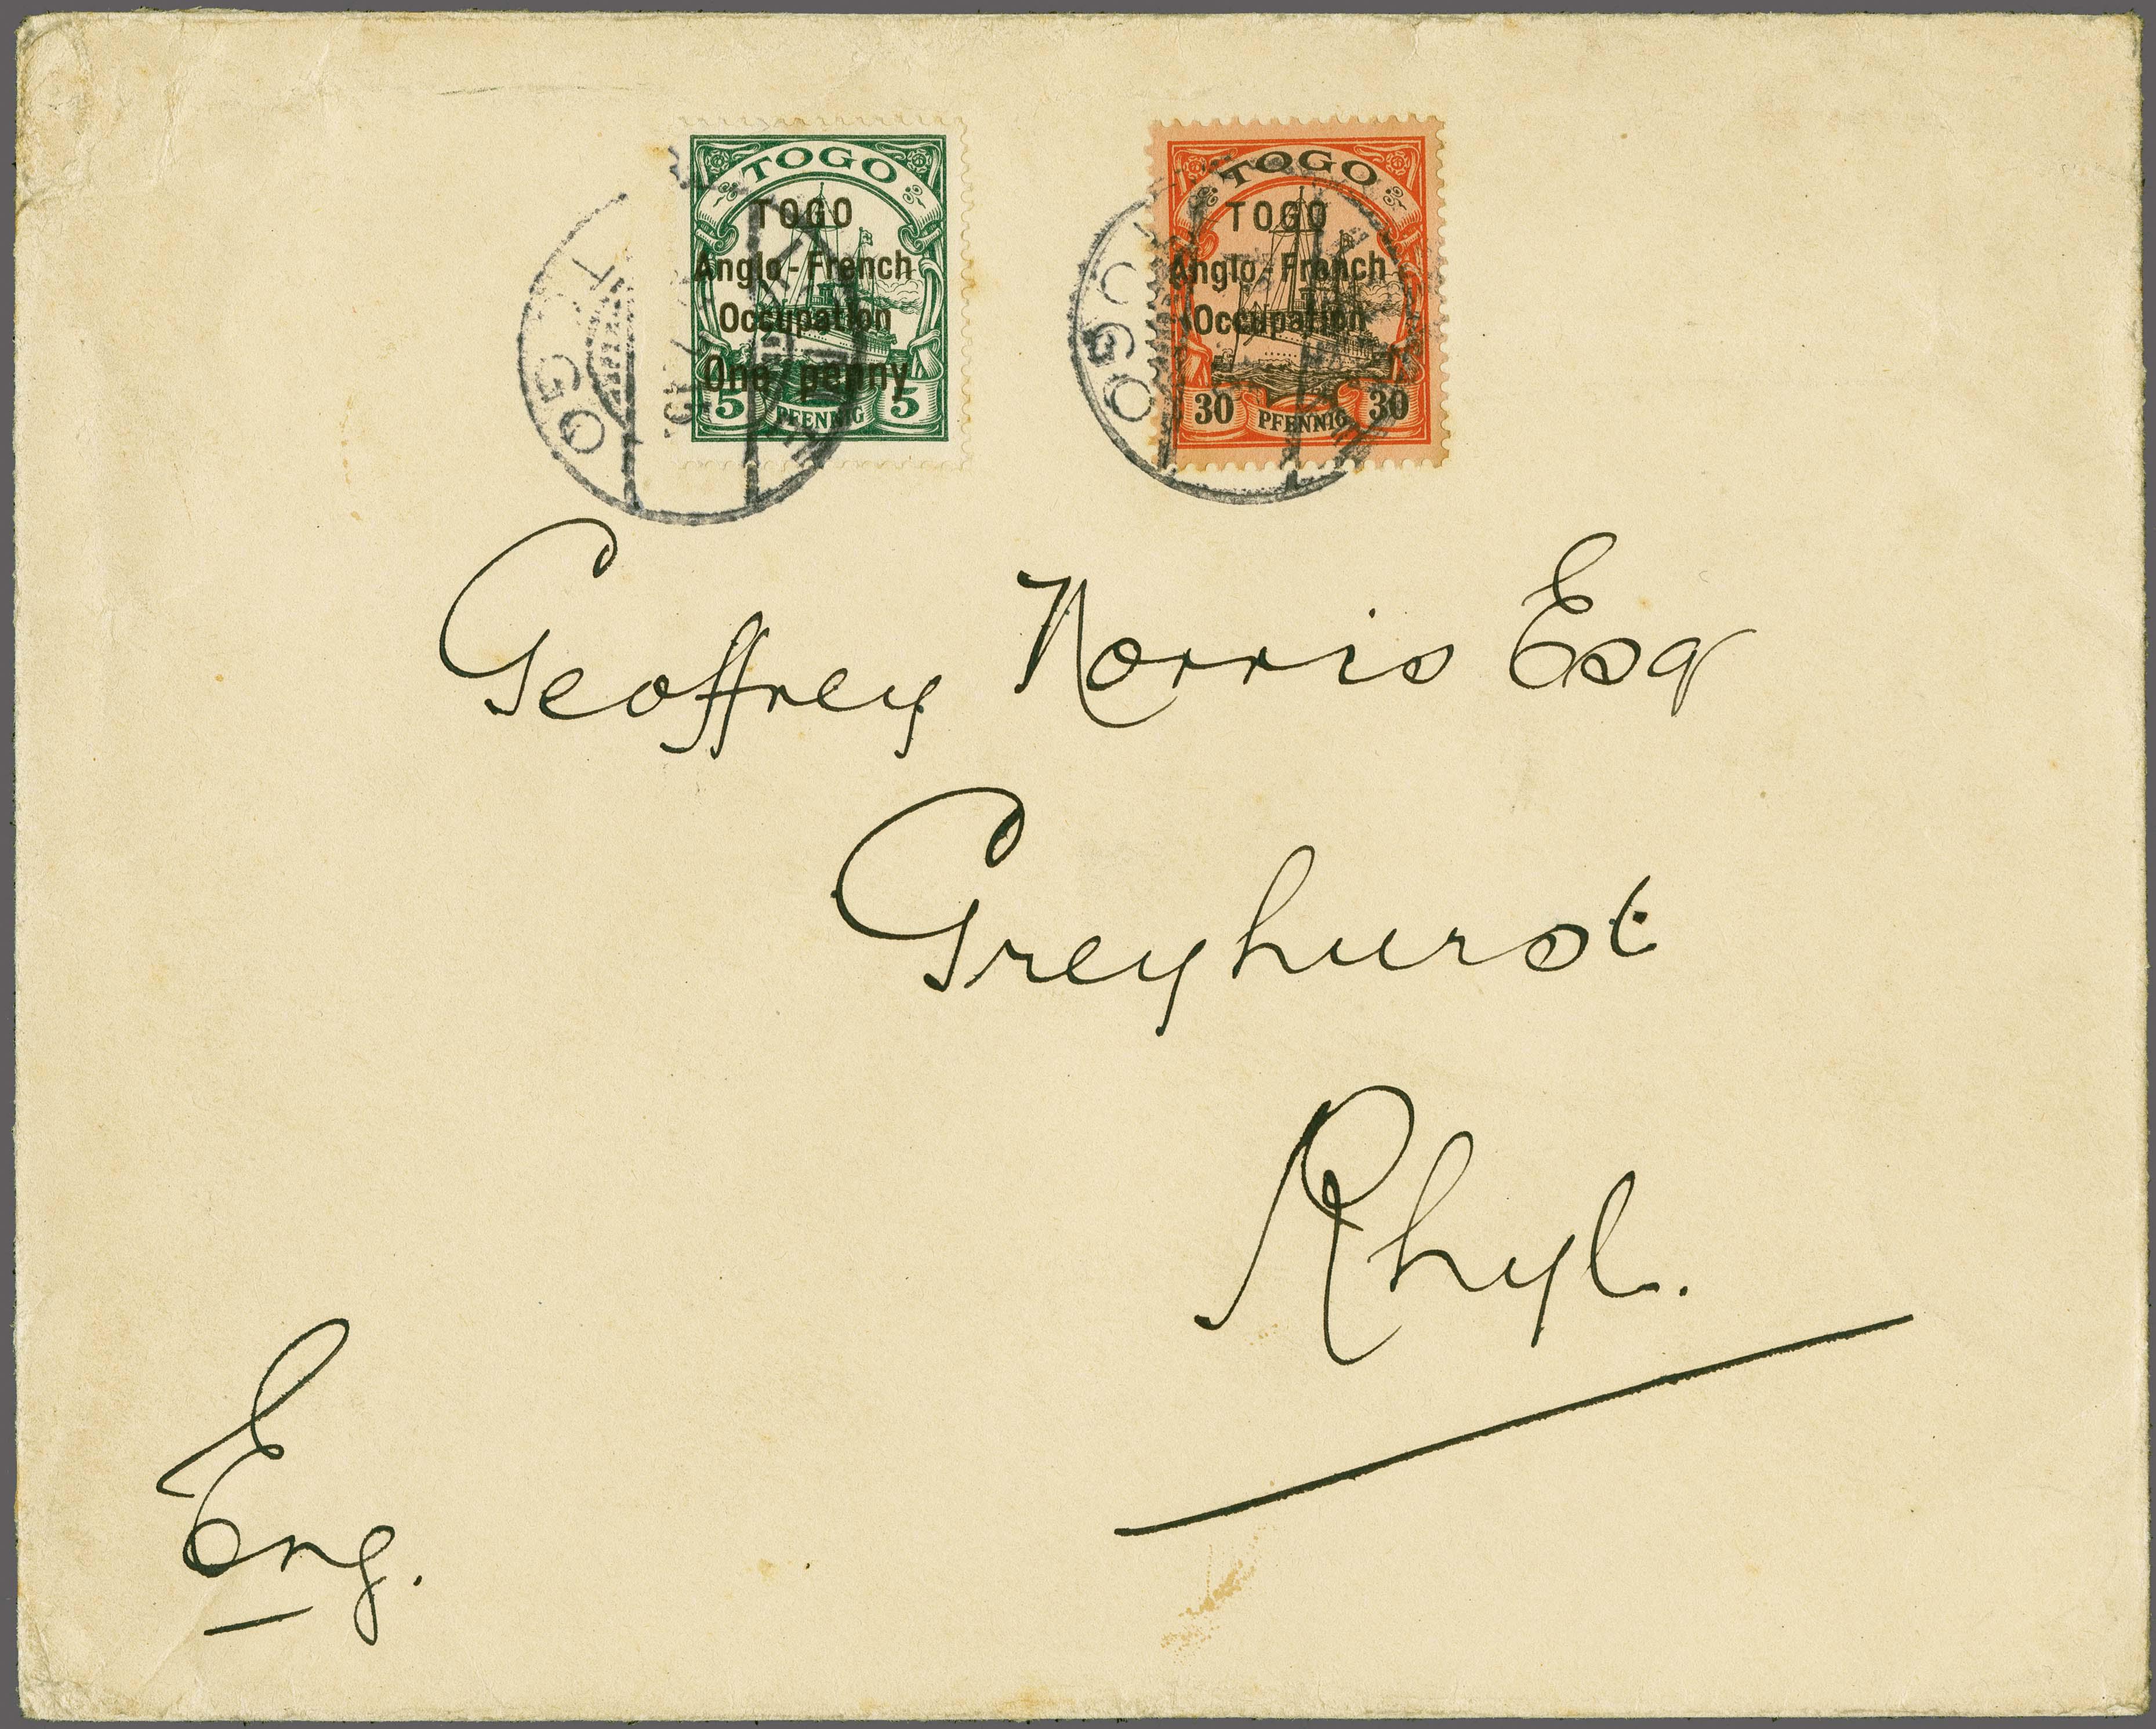 TOGO
TOGO
Anglo-French
Occupation
One penny
5 PFENNIG 5
TOGO
TOGO
Anglo-French
Occupation
30 PFENNIG 30
TOGO
TOGO
Geoffrey Norris Esq
Greyhurst
Rhyl.
Eng.